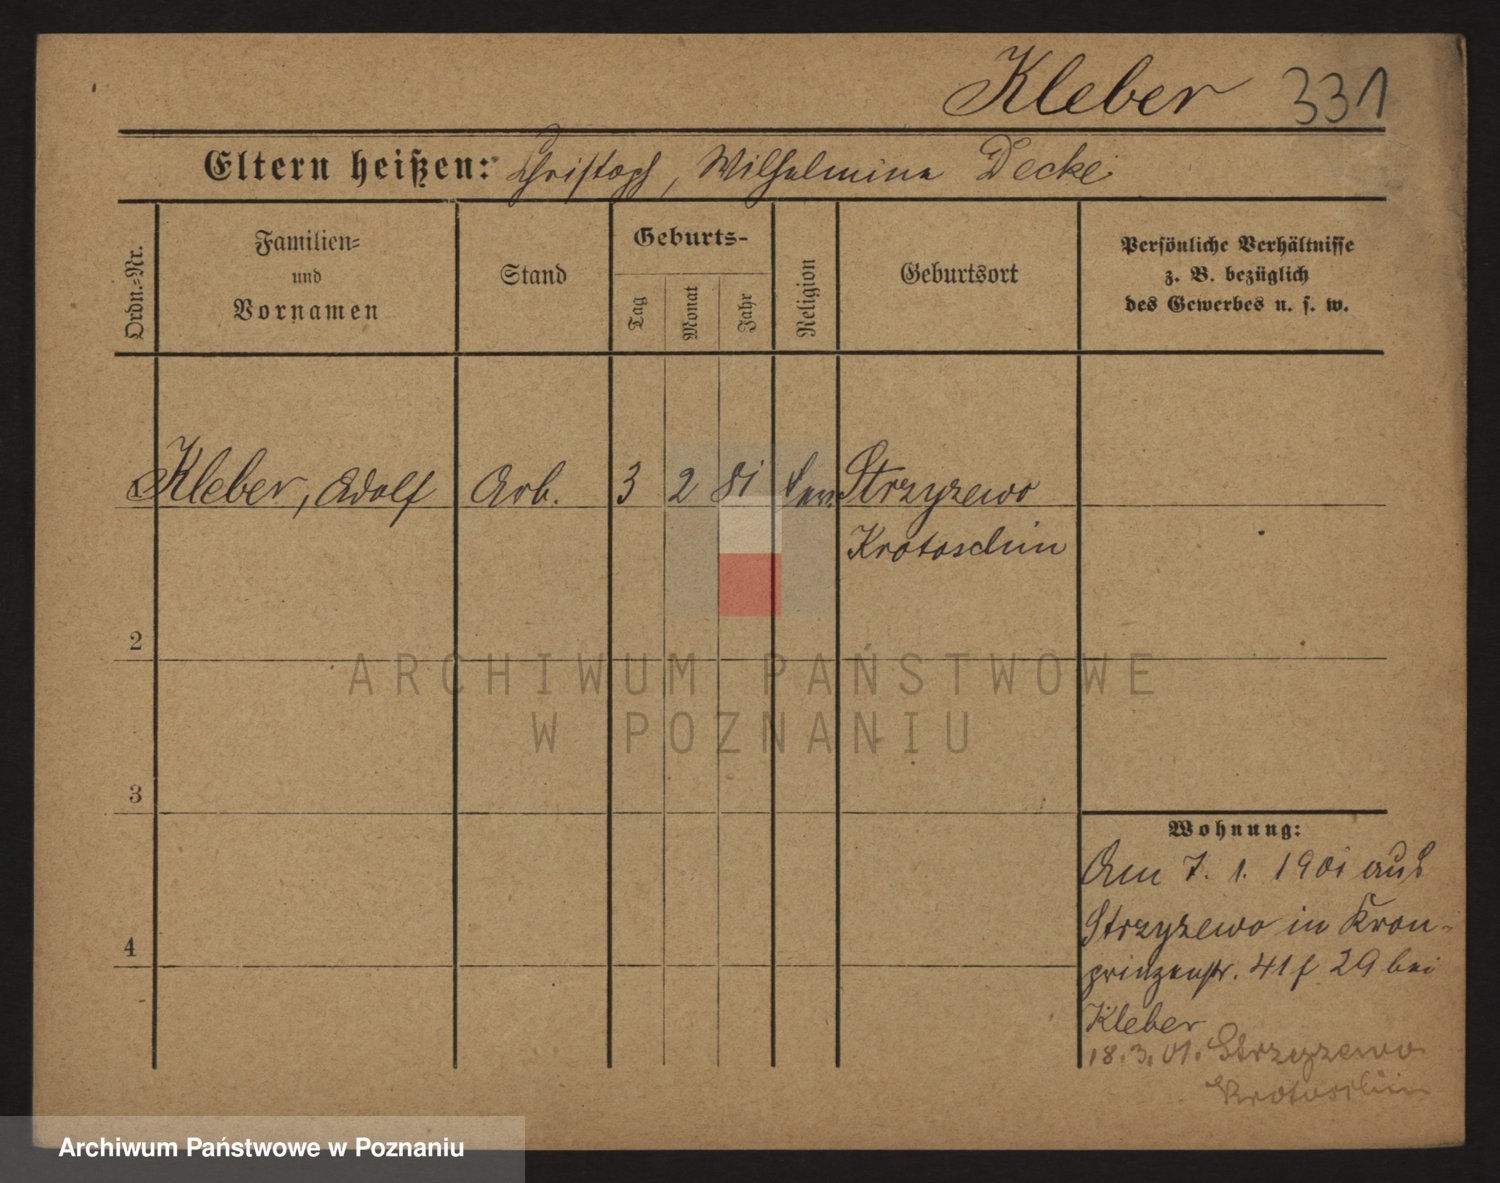 Kleber 331
Eltern heißen: Christoph, Wilhelmine Decke
Ordn.-Nr.
Familien-
und
Vornamen
Stand
Geburts-
Tag
Monat
Jahr
Religion
Geburtsort
Persönliche Verhältnisse
z. B. bezüglich
des Gewerbes u. s. w.
Kleber, Adolf Arb. 3 2 81 Strzyzewo
Krotoschin
2
3
4
ARCHIWUM PAŃSTWOWE
W POZNANIU
Wohnung:
Am 7. 1. 1901 aus
Strzyzewo in Kron-
prinzenstr. 41 29 bei
Kleber
18. 3. 01. Strzyzewo
Krotoschin
Archiwum Państwowe w Poznaniu